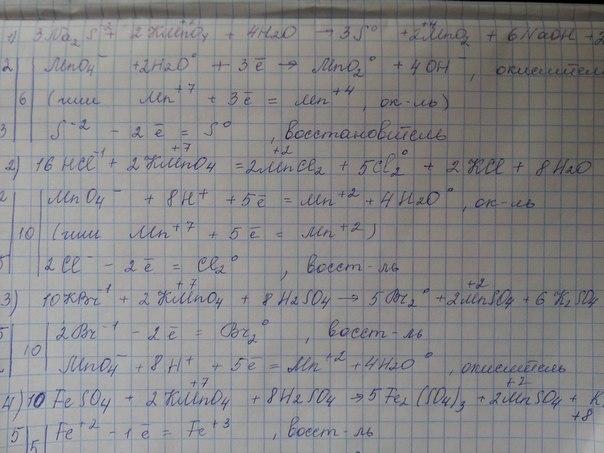 1) 3Na₂S⁻² + 2KMnO₄⁺⁷ + 4H₂O → 3S⁰ + 2MnO₂⁺⁴ + 6NaOH + 2
2| MnO₄⁻ + 2H₂O⁰ + 3ē → MnO₂⁰ + 4OH⁻, окислител
6 (или Mn⁺⁷ + 3ē = Mn⁺⁴, ок-ль)
3 S⁻² - 2ē = S⁰, восстановитель
2) 16HCl⁻¹ + 2KMnO₄⁺⁷ = 2MnCl₂⁺² + 5Cl₂⁰ + 2KCl + 8H₂O
2 MnO₄⁻ + 8H⁺ + 5ē = Mn⁺² + 4H₂O⁰, ок-ль
10 (или Mn⁺⁷ + 5ē = Mn⁺²)
5 2Cl⁻ - 2ē = Cl₂⁰, восст-ль
3) 10KBr⁻¹ + 2KMnO₄⁺⁷ + 8H₂SO₄ → 5Br₂⁰ + 2MnSO₄⁺² + 6K₂SO₄
5| 2Br⁻¹ - 2ē = Br₂⁰, восст-ль
10
MnO₄⁻ + 8H⁺ + 5ē = Mn⁺² + 4H₂O⁰, окислитель
4) 10FeSO₄ + 2KMnO₄⁺⁷ + 8H₂SO₄ → 5Fe₂(SO₄)₃ + 2MnSO₄⁺² + K
+8
5|5| Fe⁺² - 1ē = Fe⁺³, восст-ль